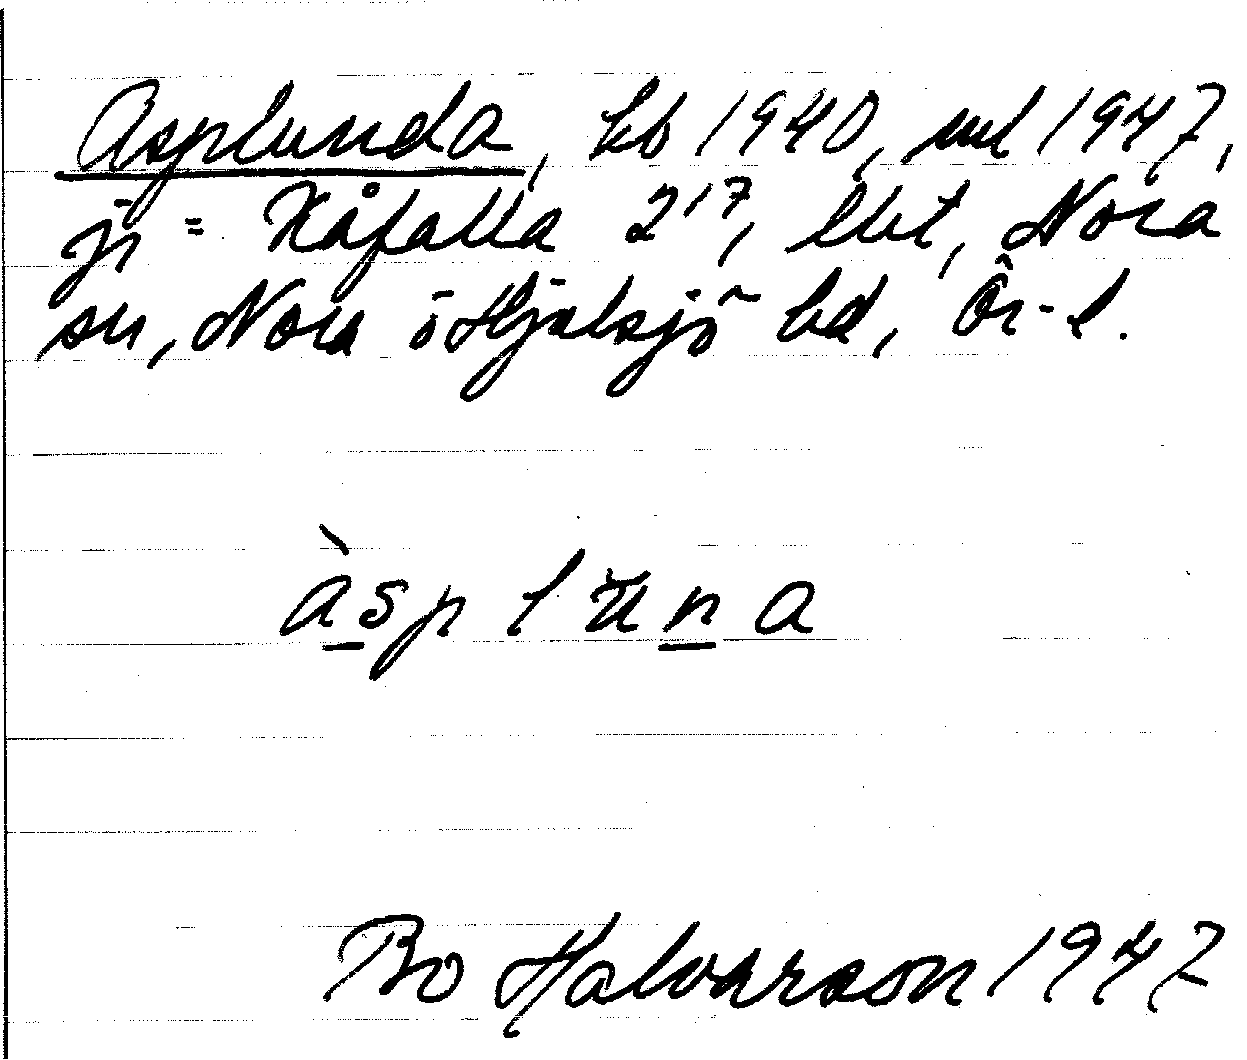 Asplunda, kb 1940, ml 1947,
jr = Kåfalla 2¹⁷, lht, Nora
sn, Nora o Hjulsjö bd, Ör-l.
àsplŭna
Bo Halvarson 1947